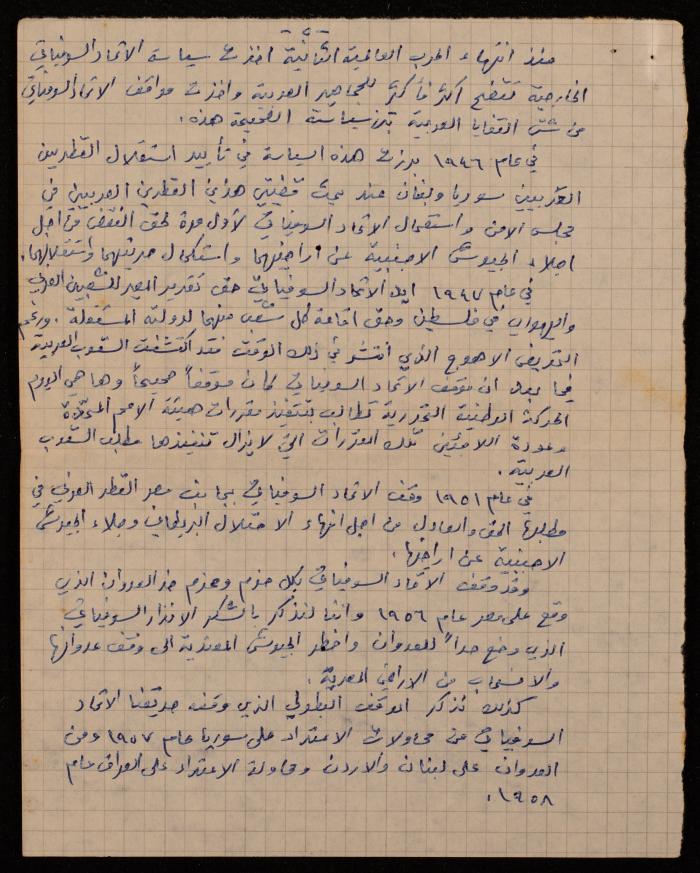 - ٥ -
منذ انتهاء الحرب العالمية الثانية اخذت سياسة الاتحاد السوفياتي
الخارجية تتضح اكثر فأكثر للجماهير العربية واخذت مواقف الاتحاد السوفياتي
من شتى القضايا العربية تبرز سياسته الصحيحة هذه.
في عام ١٩٤٦ برزت هذه السياسة في تأييد استقلال القطرين
العربيين سوريا ولبنان عند بحث قضيتي هذين القطرين العربيين في
مجلس الامن واستعمال الاتحاد السوفياتي لأول مرة لحق النقض من اجل
اجلاء الجيوش الاجنبية عن اراضيهما واستكمال حريتهما واستقلالهما.
في عام ١٩٤٧ ايد الاتحاد السوفياتي حق تقرير المصير للشعبين العربي
واليهودي في فلسطين وحق اقامة كل شعب منهما لدولته المستقلة. ورغم
التحريض الاهوج الذي انتشر في ذلك الوقت فقد اكتشفت الشعوب العربية
فيما بعد ان موقف الاتحاد السوفياتي كان موقفاً صحيحاً وها هي اليوم
الحركة الوطنية التحررية تطالب بتنفيذ مقررات هيئة الامم المتحدة
وعودة اللاجئين تلك المقررات التي لا يزال تنفيذها مطلب الشعوب
العربية.
في عام ١٩٥١ وقف الاتحاد السوفياتي بجانب مصر القطر العربي في
مطلبها الحق والعادل من اجل انهاء الاحتلال البريطاني وجلاء الجيوش
الاجنبية عن اراضيها.
وقد وقف الاتحاد السوفياتي بكل حزم وعزم ضد العدوان الذي
وقع على مصر عام ١٩٥٦ واننا لنذكر بالشكر الانذار السوفياتي
الذي وضع حداً للعدوان واضطر الجيوش المعتدية الى وقف عدوانها
والانسحاب من الاراضي المصرية.
كذلك نذكر الموقف البطولي الذي وقفه صديقنا الاتحاد
السوفياتي من محاولات الاعتداء على سوريا عام ١٩٥٧ ومن
العدوان على لبنان والاردن ومحاولة الاعتداء على العراق عام
١٩٥٨.